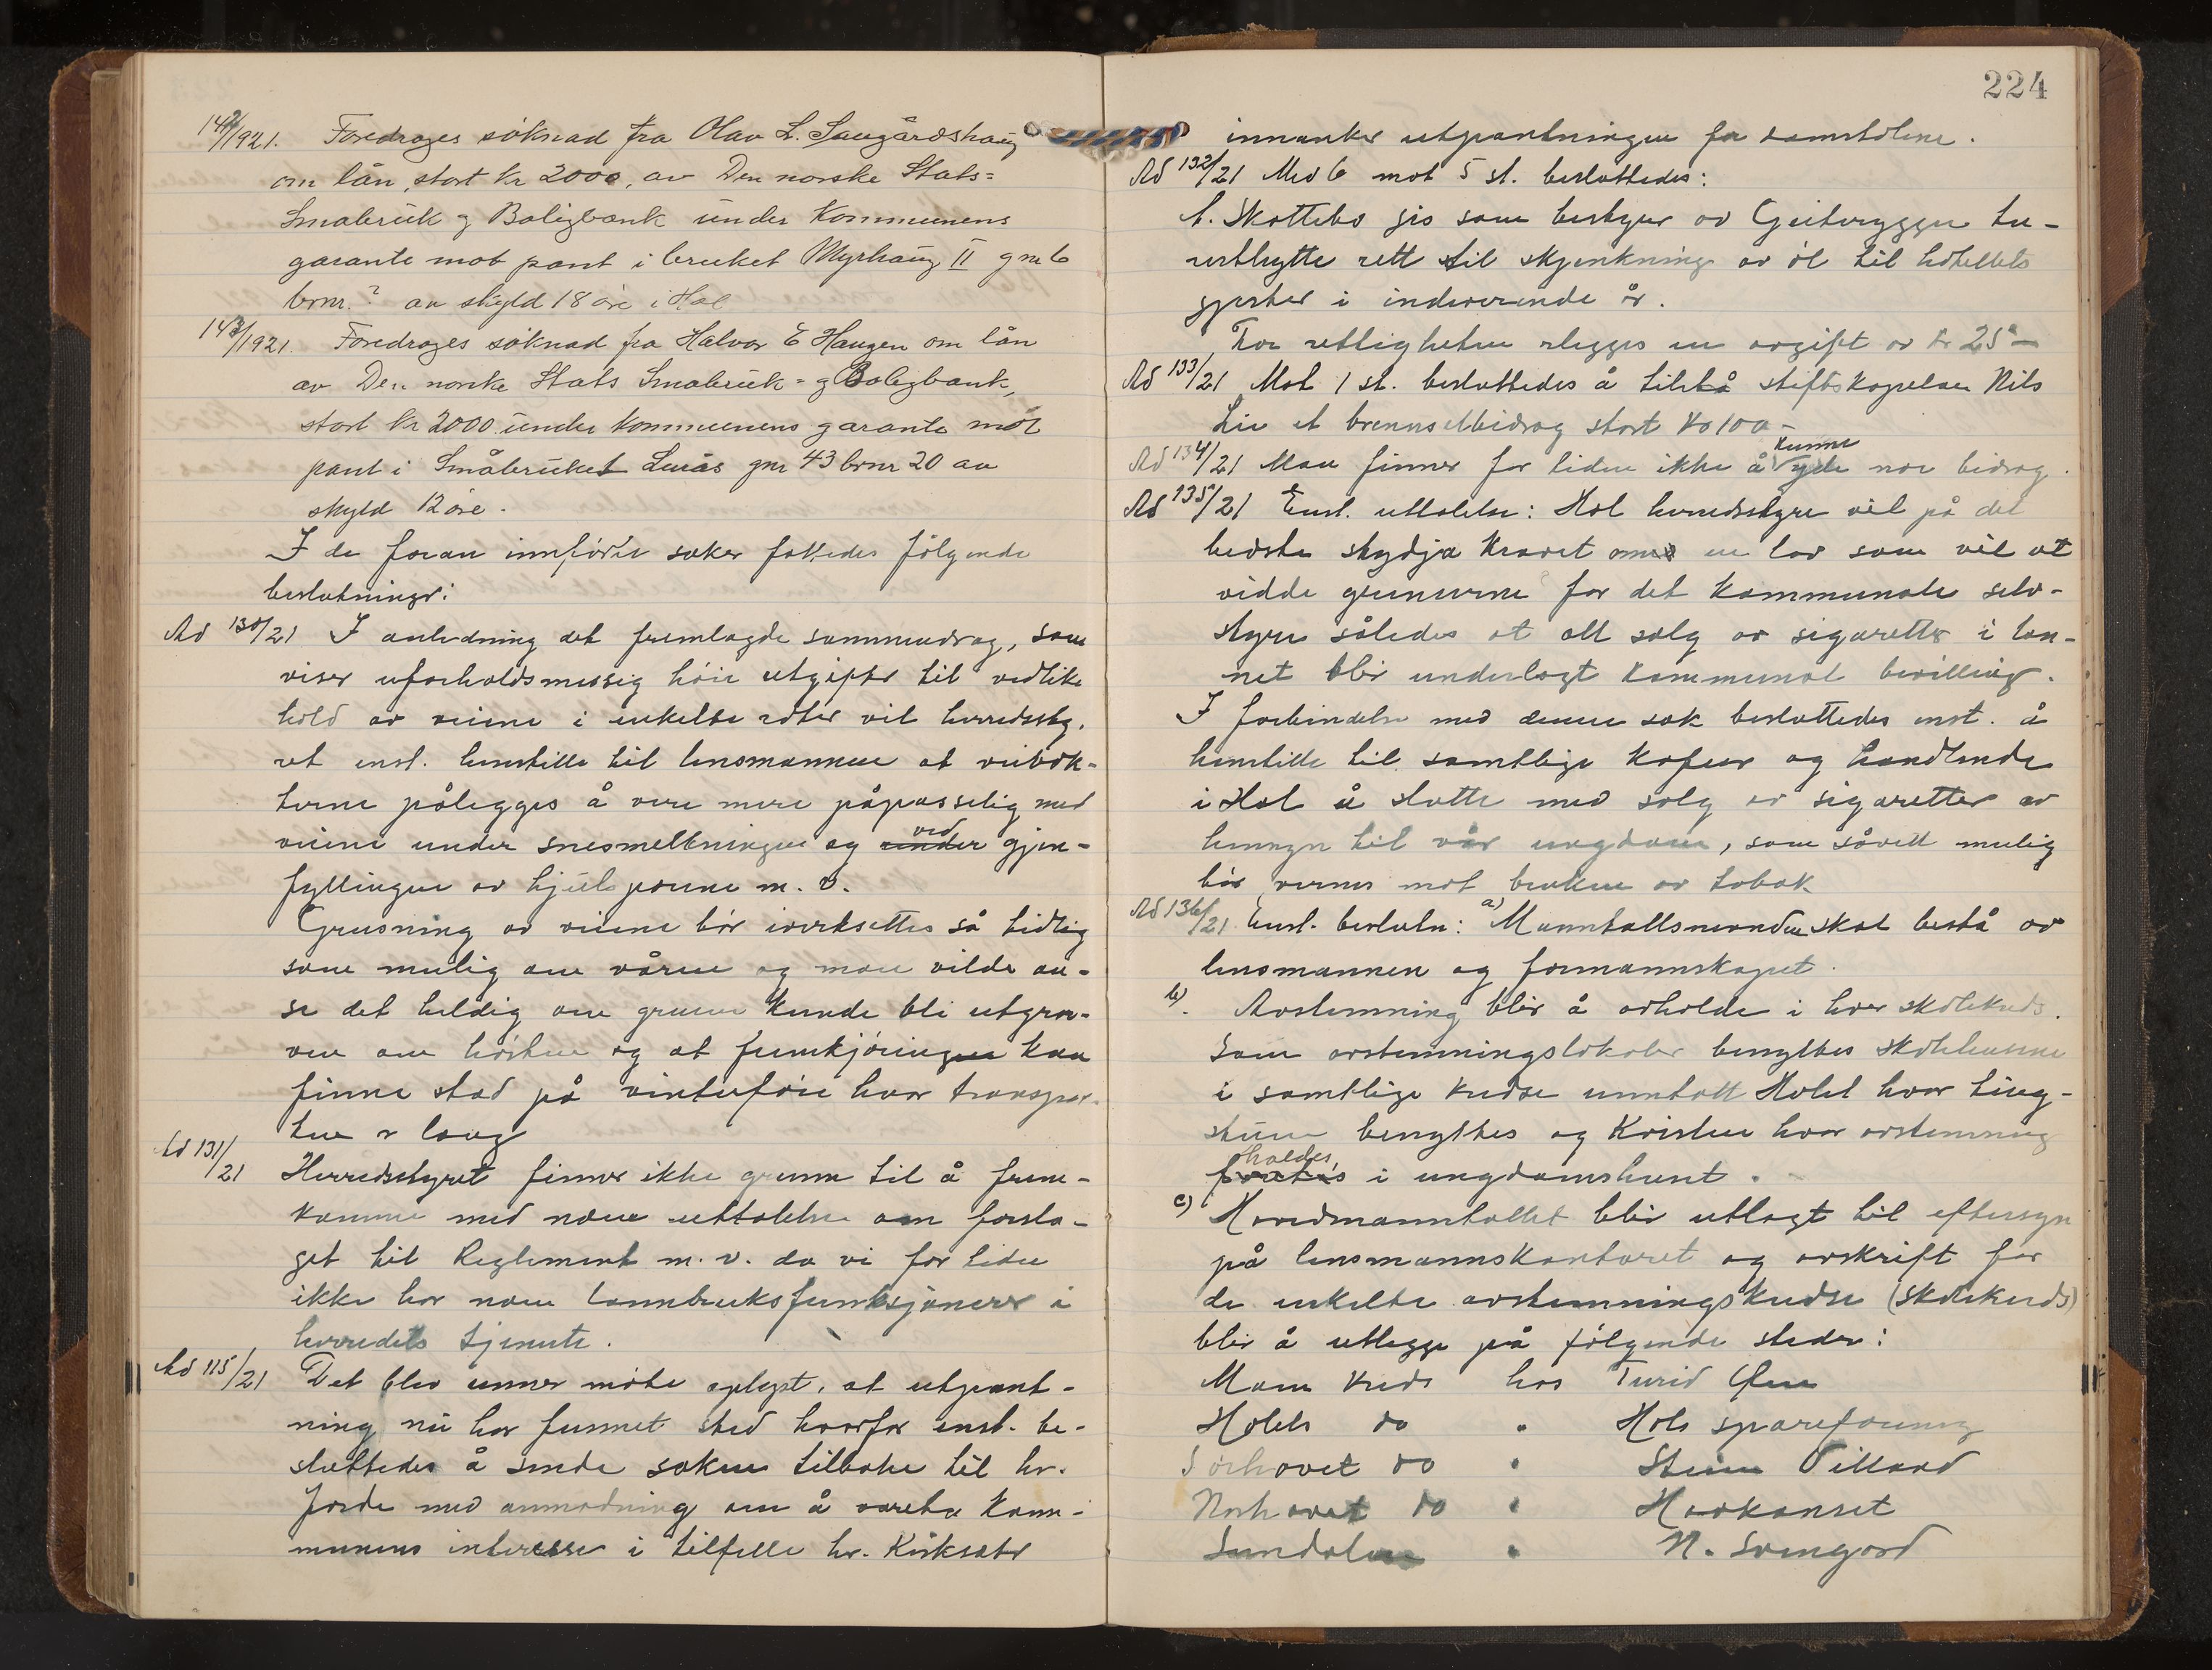 142/1921. Foredrages søknad fra Olav L. Sangårdshaug
om lån, stort kr 2000, av Den norske Stats=
Småbruk og Boligbank under kommunens
garanti mot pant i bruket Myrhaug II gnr 6
brnr ? av skyld 18 øre i Hol
143/1921. Foredrages søknad fra Halvor E Haugen om lån
av Den norske Stats Småbruk= og Boligbank,
stort kr 2000 under kommunens garanti mot
pant i Småbruket Luras gnr 43 brnr 20 av
skyld 12 øre.
I de foran innførte saker fattedes følgende
beslutninger:
Ad 130/21 I anledning det fremlagde sammendrag, som
viser uforholdsmessig høie utgifter til vedlike
hold av veiene i enkelte roter vil herredssty.
ret enst. henstille til lensmannen at veivok-
terne pålegges å vere mere påpasselig med
veiene under snesmeltningen og under ved gjen-
fyllingen av hjulsporene m. v.
Grusning av veiene bør iverksettes så tidlig
som mulig om våren og man vilde an-
se det heldig om grusen kunde bli utgra-
ven om høsten og at fremkjøringen kan
finne sted på vinterføre hvor transpor-
ten er lang
Ad 131/21 Herredsstyret finner ikke grunn til å frem-
komme med noen uttalelse om forsla-
get til Reglement m. v. da vi for tiden
ikke har noen lannbruksfunksjonerer i
herredets tjeneste.
Ad 115/21 Det blev unner møte oplyst, at utpant-
ning nu har funnet sted hvorfor enst. be-
sluttedes å sende saken tilbake til hr.
Jorde med anmodning om å vareta kom-
munens interesser i tilfelle hr. Kirksæter
224
innanker utpantningen for domstolene.
Ad 132/21 Med 6 mot 5 st. besluttedes:
A. Skottebo gis som bestyrer av Geiteryggen tu-
risthytte rett til skjenkning av øl til hotellets
gjester i indeverende år.
For rettigheten erlegges en avgift av kr 25 -
Ad 133/21 Mot 1 st. besluttedes å tilstå stiftskapelan Nils
Lie et brennselbidrag stort kr 100 -
Ad 134/21 Man finner for tiden ikke å kunne yde noe bidrag.
Ad 135/21 Enst. uttalelse: Hol herredsstyre vil på det
bedste stydja kravet om en lov som vil ut
vidde grensene for det kommunale selv-
styre således at alt salg av sigaretter i lan-
net blir underlagt kommunal bevilling.
I forbindelse med denne sak besluttedes enst. å
henstille til samtlige kafeer og handlende
i Hol å slutte med salg av sigaretter av
hensyn til vår ungdom, som såvitt mulig
bør vernes mot bruken av tobak
Ad 136/21 Enst. besluttn: a) Manntallsnevnden skal bestå av
lensmannen og formannskapet.
b) Avstemning blir å avholde i hver skolekreds.
Som avstemningslokaler benyttes skolehusene
i samtlige kredse unntatt Holet hvor ting-
stuen benyttes og Kvislen hvor avstemning
holdes i ungdomshuset.
c) Hovedmanntallet blir utlagt til eftersyn
på lensmannskontoret og avskrift for
de enkelte avstemningskredse (skolekreds)
blir å utlegge på følgende steder:
Moen kreds hos Turid Øen
Holets do " Hols spareforening
Sørhovet do " Villand
Norhovet do "
Sundalen " N. Sveingard